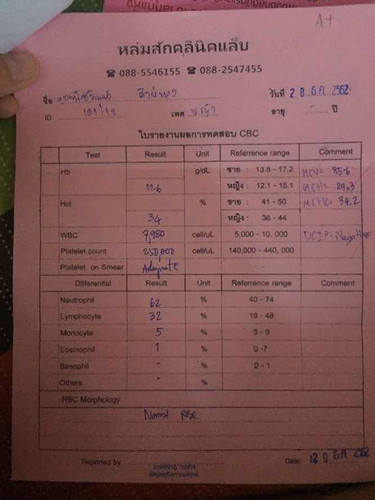 A+
หล่มสักคลินิคแล็บ
☎ 088-5546155 ☎ 088-2547455
ชื่อ วันที่ 2 8 ธ.ค. 2562
ID เพศ หญิง อายุ - ปี
ใบรายงานผลการทดสอบ CBC
Test Result Unit Referrence range Comment
Hb g/dL ชาย : 13.8 - 17.2 MCV= 85.6
11.6 หญิง : 12.1 - 15.1 MCH= 29.3
Hct % ชาย : 41 - 50 MCHC= 34.2
34 หญิง : 36 - 44
WBC 9,980 cell/uL 5,000 - 10, 000 DCIP= Negative
Platelet count 250,000 cell/uL 140,000 - 440, 000
Platelet on Smear Adequate
Differential Result Unit Referrence range Comment
Neutrophil 62 % 40 - 74
Lymphocyte 32 % 19 - 48
Monocyte 5 % 3 - 9
Eosinophil 1 % 0 -7
Basophil - % 0 - 1
Others - %
RBC Morphology
Normal RBC
Reported by Date: 2562